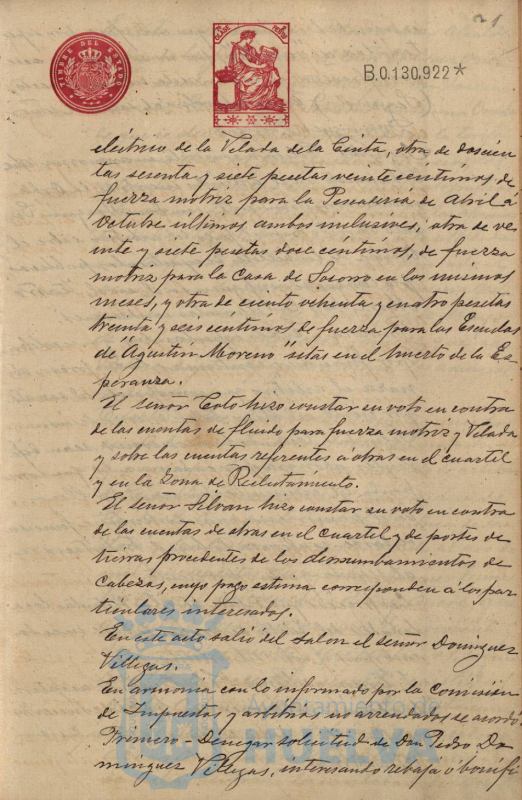 21
TIMBRE DEL ESTADO
B.0.130,922*
eléctrico de la Velada de la Cinta, otra, de doscien
tas sesenta y siete pesetas veinte centimos de
fuerza motriz para la Pescadería de Abril á
Octubre últimos ambos inclusives; otra de ve
inte y siete pesetas doce céntimos, de fuerza
motriz para la Casa de Socorro en los mismos
meses, y otra de ciento ochenta y cuatro pesetas
treinta y seis céntimos de fuerza para las Escuelas
de "Agustin Moreno" sitas en el huerto de la Es
peranza.
El señor Coto hizo constar su voto en contra
de las cuentas de fluido para fuerza motriz y Velada
y sobre las cuentas referentes á obras en el cuartel
y en la Zona de Reclutamiento.
El señor Silvan hizo constar su voto en contra
de las cuentas de obras en el cuartel y de portes de
tierras procedentes de los derrumbamientos de
Cabezas, cuyo pago estima corresponden á los par
ticulares interesados.
En este acto salió del salon el señor Dominguez
Villegas.
En armonia con lo informado por la Comision
de Impuestos y arbitrios no arrendados se acordó:
Primero = Denegar solicitud de Don Pedro Do
minguez Villegas, interesando rebaja ó bonifi
Ayuntamiento de
HUELVA